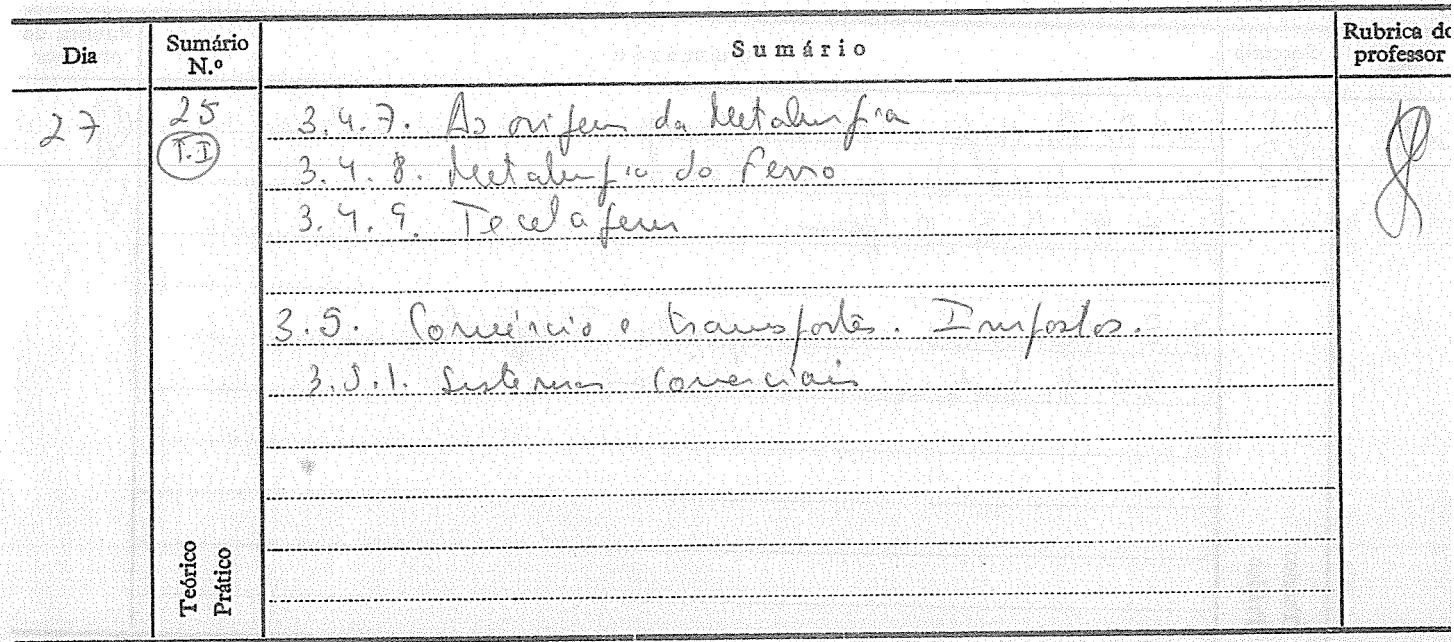 Dia Sumário N.º Sumário Rubrica do professor
27 25 3.4.7. As origens da Metalurgia
(T.I) 3.4.8. Metalurgia do Ferro
3.4.9. Tecelagem
3.5. Comércio e transportes. Impostos.
3.5.1. Sistemas comerciais
Teórico
Prático